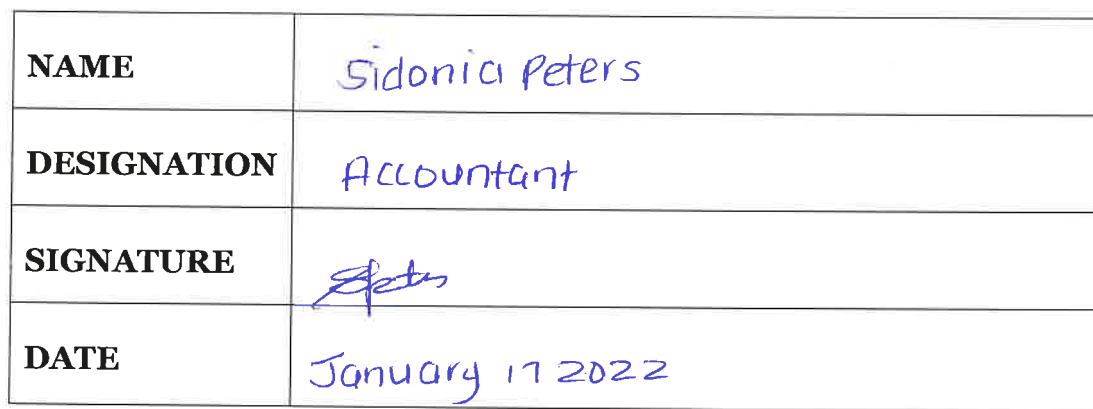 NAME Sidonia Peters
DESIGNATION Accountant
SIGNATURE SPeters
DATE January 17 2022